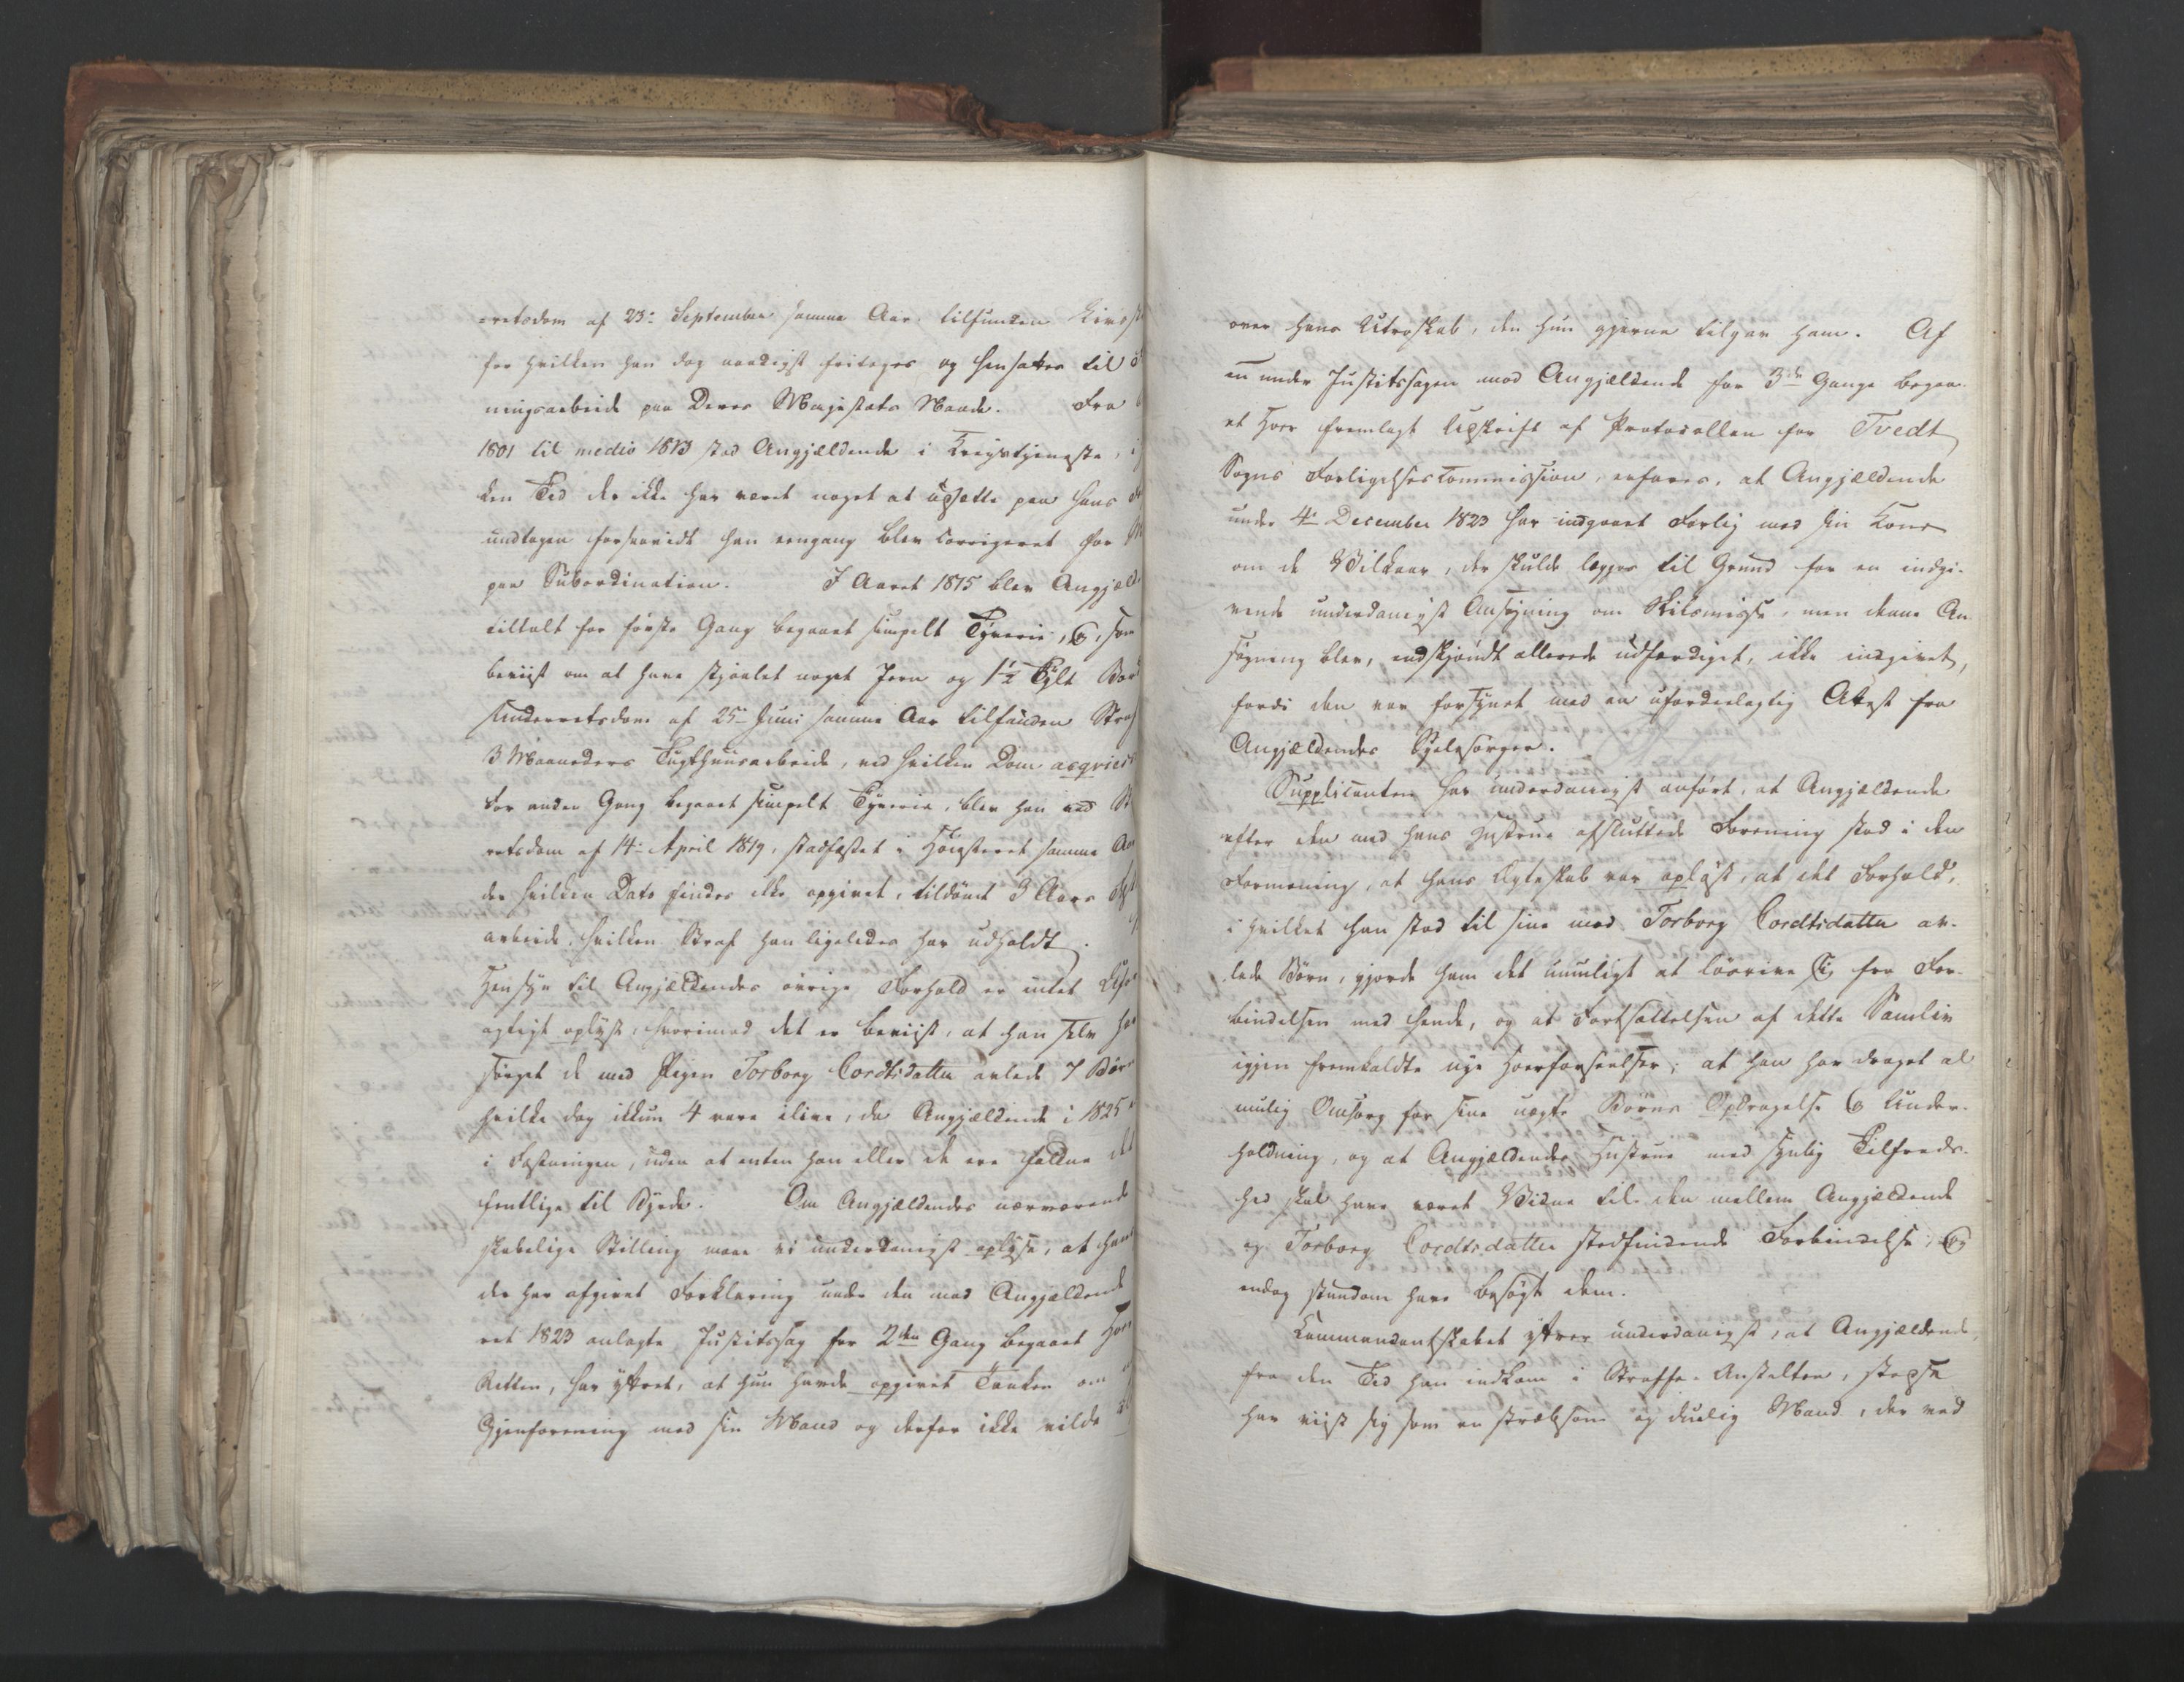 =retsdom af 23de September samme Aar tilfunden Livsst
for hvilken han dog naadigst fritoges og hensattes til
ningsarbeide paa Deres Majestæts Naade. Fra
1801 til medio 1813 stod Angjældende i Krigstjeneste, i
ken Tid der ikke har været noget at udsætte paa hans
undtagen forsaavidt han eengang blev corrigeret for
paa Subordination. I Aaret 1815 blev Angjæld
tiltalt for første Gang begaaet simpelt Tyverie, og, som
beviist om at have stjaalet noget Jern og 1½ Tylt Bord
Underretsdom af 25de Juni samme Aar tilfunden Straf
3 Maaneders Tugthuusarbeide, ved hvilken Dom acqvies
For anden Gang begaaet simpelt Tyverie, blev han ved St
retsdom af 14de April 1819, stadfæstet i Høiesteret samme Aar
der hvilken Dato findes ikke opgivet, tildømt 3 Aars
arbeide, hvilken Straf han ligeledes har udholdt.
Hensyn til Angjældendes øvrige Forhold er intet Ufor
agtigt oplyst, hvorimod det er beviist, at han selv har
sørget de med Pigen Torborg Cordtsdatter avlede 7 Børn
hvilke dog ikkun 4 vare ilive, da Angjældende i 1825
i Fæstningen, uden at enten han eller de ere faldne det
fentlige til Byrde. Om Angjældendes nærværende
skabelige Stilling maae vi underdanigst oplyse, at hans
der har afgivet Forklaring under den mod Angjældende
ret 1823 anlagte Justitssag for 2den Gang begaaet Hoer
Retten, har yttret, at hun havde opgivet Tanken om
Gjenforening med sin Mand og derfor ikke vilde
over hans Utroskab, den hun gjerne tilgav ham. Af
en under Justitssagen mod Angjældende for 3die Gange begaa-
et Hoer fremlagt Udskrift af Protocollen for Tvedt
Sogns Forligelsescommission, erfares, at Angjældende
under 4de December 1823 har indgaaet Forlig med sin Kone
om de Vilkaar, der skulde lægges til Grund for en indgi-
vende underdanigst Ansøgning om Skilsmisse, men denne An-
søgning blev, endskjøndt allerede udfærdiget, ikke indgivet,
fordi den var forsynet med en ufordeelagtig Attest fra
Angjældendes Sjelesørger.
Supplicanten har underdanigst anført, at Angjældende
efter den med hans Hustrue afsluttede Forening stod i den
Formening, at hans Ægteskab var opløst, at det Forhold,
i hvilket han stod til sine med Torborg Cordtsdatter av-
lede Børn, gjorde ham det umuligt at løsrive sig fra For-
bindelsen med hende, og at Fortsættelsen af dette Samliv
igjen fremkaldte nye Hoerforseelser; at han har draget al
mulig Omsorg for sine uægte Børns Opdragelse og Under-
holdning, og at Angjældendes Hustrue med synlig Tilfreds-
hed skal have været Vidne til den mellem Angjældende
og Torborg Cordtsdatter stedfindende Forbindelse, og
endog stundom have besøgt dem.
Kommandantskabet yttrer underdanigst, at Angjældende,
fra den Tid han indkom i Straffe-Anstalten, stedse
har viist sig som en stræbsom og duelig Mand, der ved